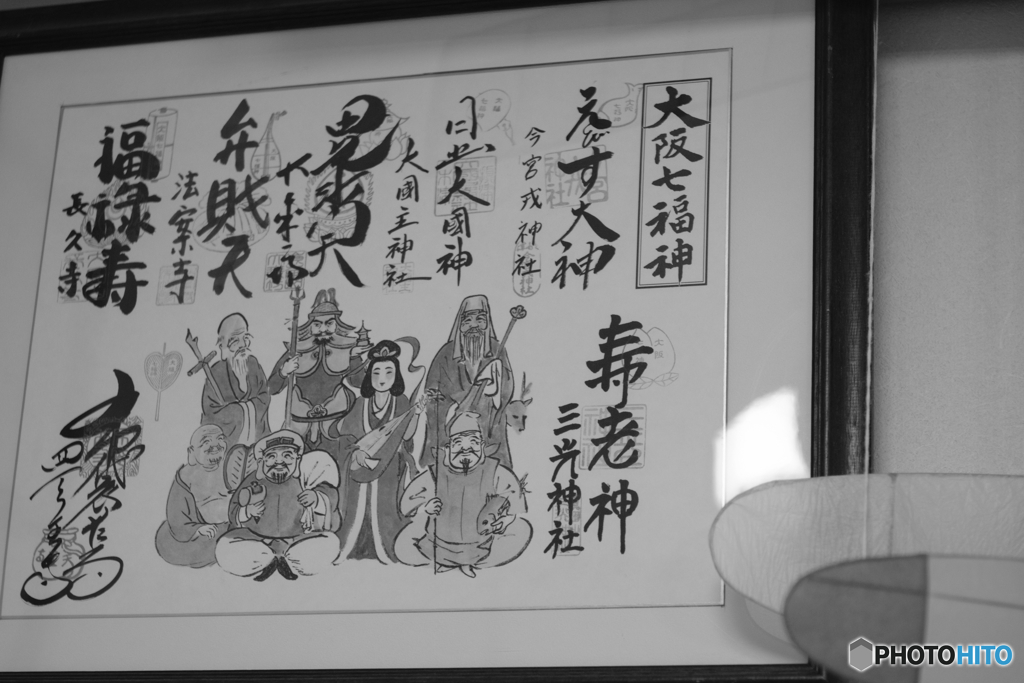 大阪七福神
えびす大神
今宮戎神社
日出大国神
大國主神社
毘沙門天
大乗坊
弁財天
法案寺
福禄寿
長久寺
寿老神
三光神社
布袋尊
四天王寺
PHOTOHITO